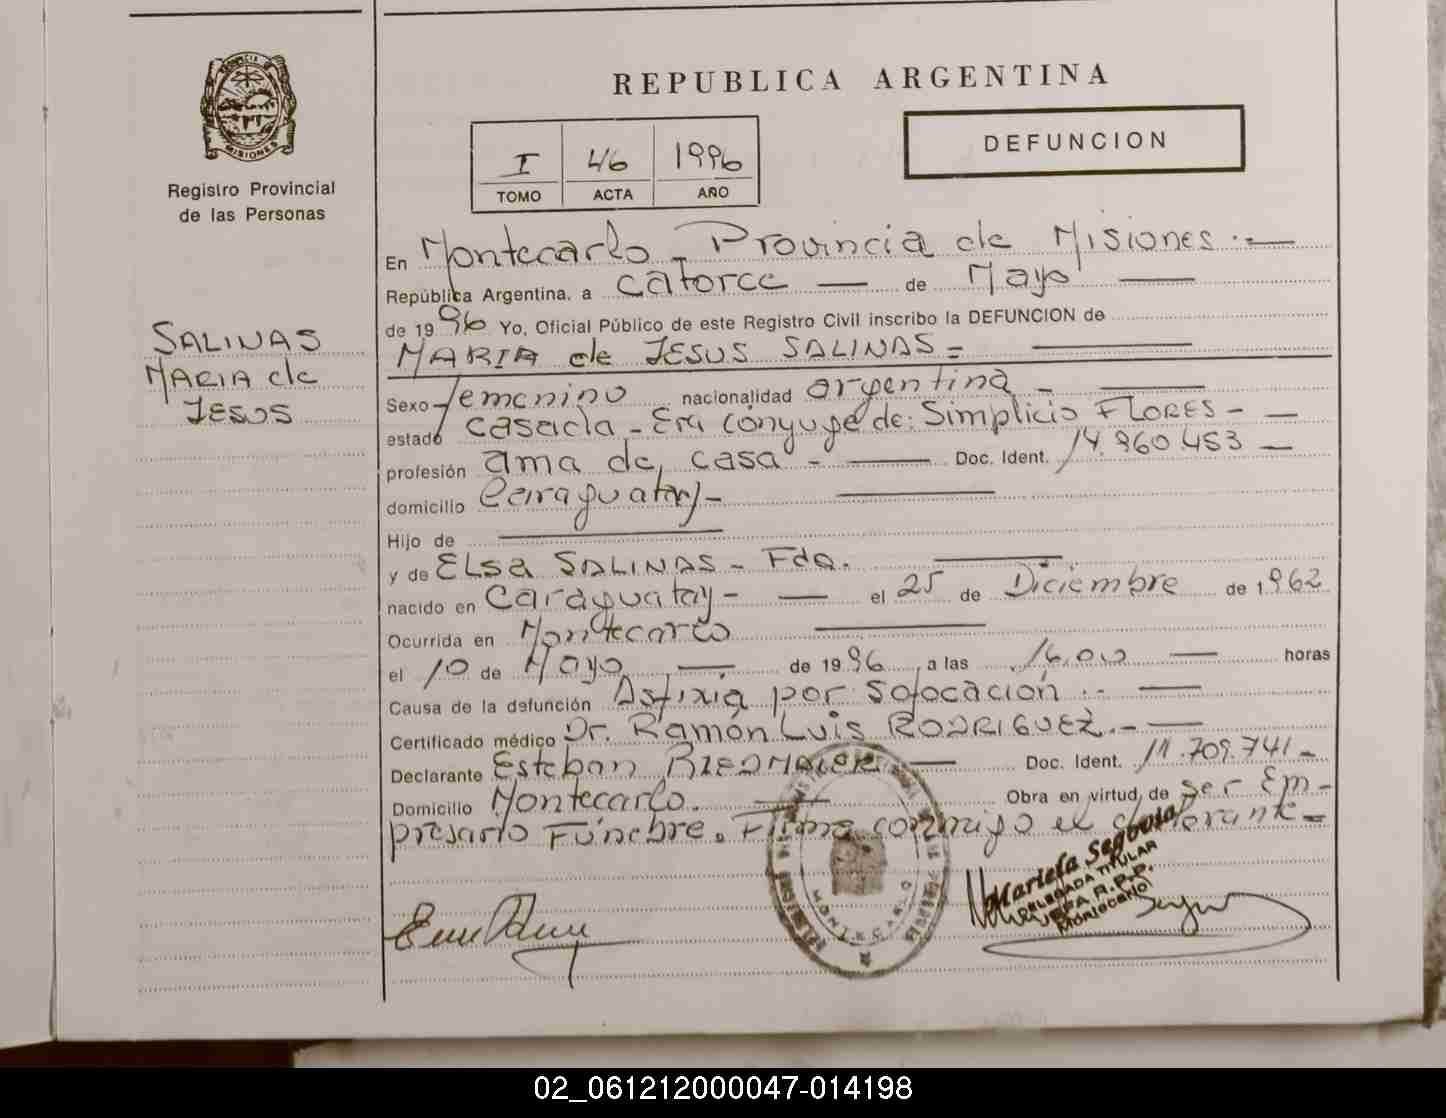 REPUBLICA ARGENTINA
PROVINCIA DE MISIONES
Registro Provincial
de las Personas
I 46 1996
TOMO ACTA AÑO
DEFUNCION
SALINAS
MARIA de
JESUS
En Montecarlo - Provincia de Misiones.-
República Argentina, a catorce de Mayo
de 1996 Yo, Oficial Público de este Registro Civil inscribo la DEFUNCION de
MARIA de JESUS SALINAS=
Sexo femenino nacionalidad argentina -
estado casada - Era cónyuge de: Simplicio FLORES -
profesión ama de casa - Doc. Ident. 14.960.453
domicilio Caraguatay -
Hijo de
y de Elsa SALINAS - Fda.
nacido en Caraguatay - el 25 de Diciembre de 1962
Ocurrida en Montecarlo
el 10 de Mayo de 1996, a las 16.00 horas
Causa de la defunción Asfixia por sofocación.-
Certificado médico Dr. Ramón Luis RODRIGUEZ.-
Declarante Esteban Doc. Ident. 11.709.741-
Domicilio Montecarlo. Obra en virtud de ser Em-
presario Fúnebre. Firma conmigo el
MONTECARLO
Mariela Segovia
DELEGADA TITULAR
JEFA R.P.P.
02_061212000047-014198